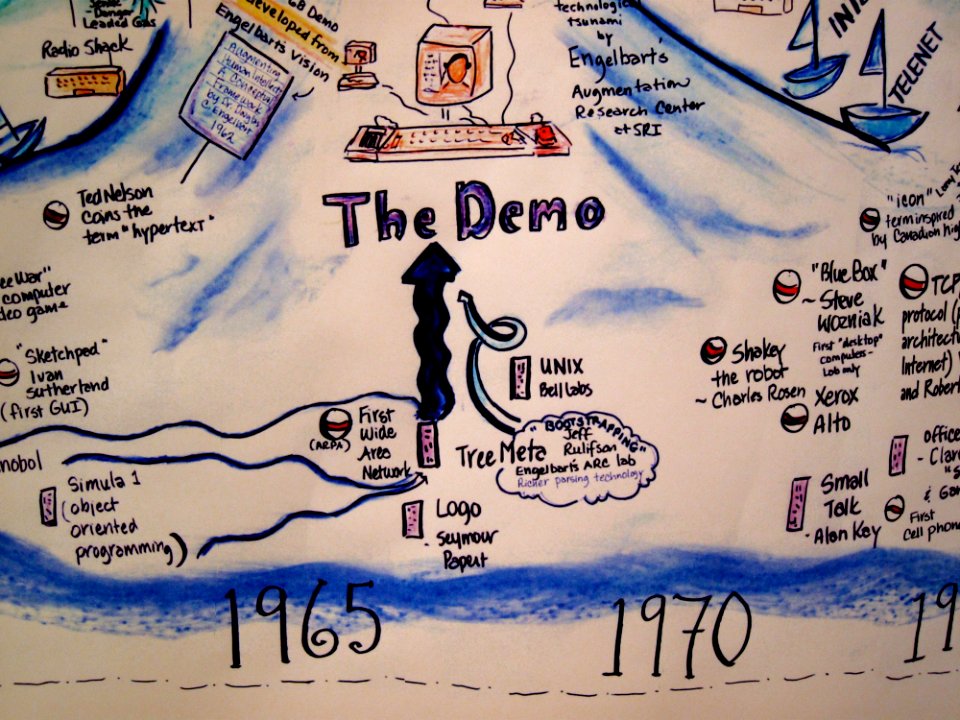 Leaded Gas
Radio Shack
68 Demo
developed from
Engelbart's Vision
Augmenting
Human Intellect
A Conceptual
Framework
by Dr. Douglas
C. Engelbart
1962
technologic
tsunami
by
Engelbart's
Augmentation
Research Center
at SRI
TELENET
The Demo
Ted Nelson
coins the
term "hypertext"
"icon"
term inspired
by Canadian hig
ce War"
computer
deo game
"Sketchpad"
Ivan
Sutherland
(first GUI)
nobol
Simula 1
(object
oriented
programming)
(ARPA)
First
Wide
Area
Network
UNIX
Bell Labs
Tree Meta
"BOOTSTRAPPING"
Jeff
Rulifson
Engelbart's ARC lab
Richer parsing technology
Logo
- Seymour
Papert
"Blue Box"
~ Steve
Wozniak
First "desktop"
computers -
Lab only
Xerox
Alto
Shakey
the robot
~ Charles Rosen
TCP
protocol (
architectu
Internet)
and Robert
Small
Talk
- Alan Key
office
- Clar
"S
& Ga
First
Cell phone
1965
1970
19